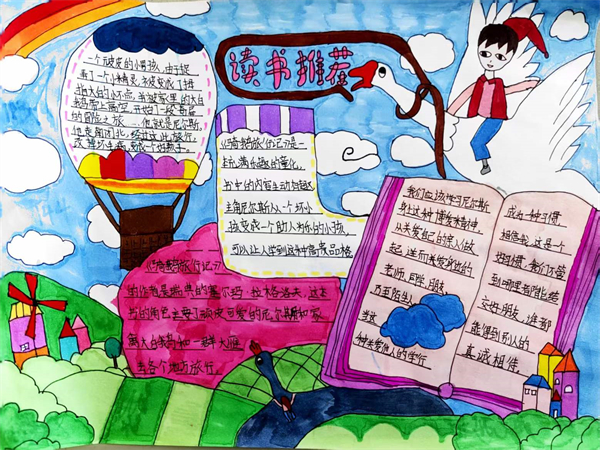 读书推荐
一个顽皮的小男孩,由于捉
弄了一个小精灵,被变成了拇
指大的小不点,并被家里的大白
鹅带上高空,开始了一段奇异
的冒险之旅——他就是尼尔斯,
他走南闯北,经过这此旅行,
改掉坏毛病,变成一个好孩子。
《骑鹅旅行记》是一
本充满乐趣的童话,
书中的内容生动与有趣
主角尼尔斯从一个坏小
孩变成一个助人为乐的小孩,
可以让人学到这种高贵品格
《骑鹅旅行记》
的作者是瑞典的塞尔玛·拉格洛夫,这本
书的角色主要有顽皮可爱的尼尔斯和家
鹅大白鹅和一群大雁
去各个地方旅行。
我们应该学习尼尔斯
身上这种博爱精神,
从关爱自己的家人做
起,进而关爱身边的
老师,同学,朋友,
乃至陌生人
当这
种关爱他人的学行
成为一种习惯,
相信我,这是一个
好习惯,我们不管
到哪里都能结
交好朋友,谁都
能得到别人的
真诚相待。